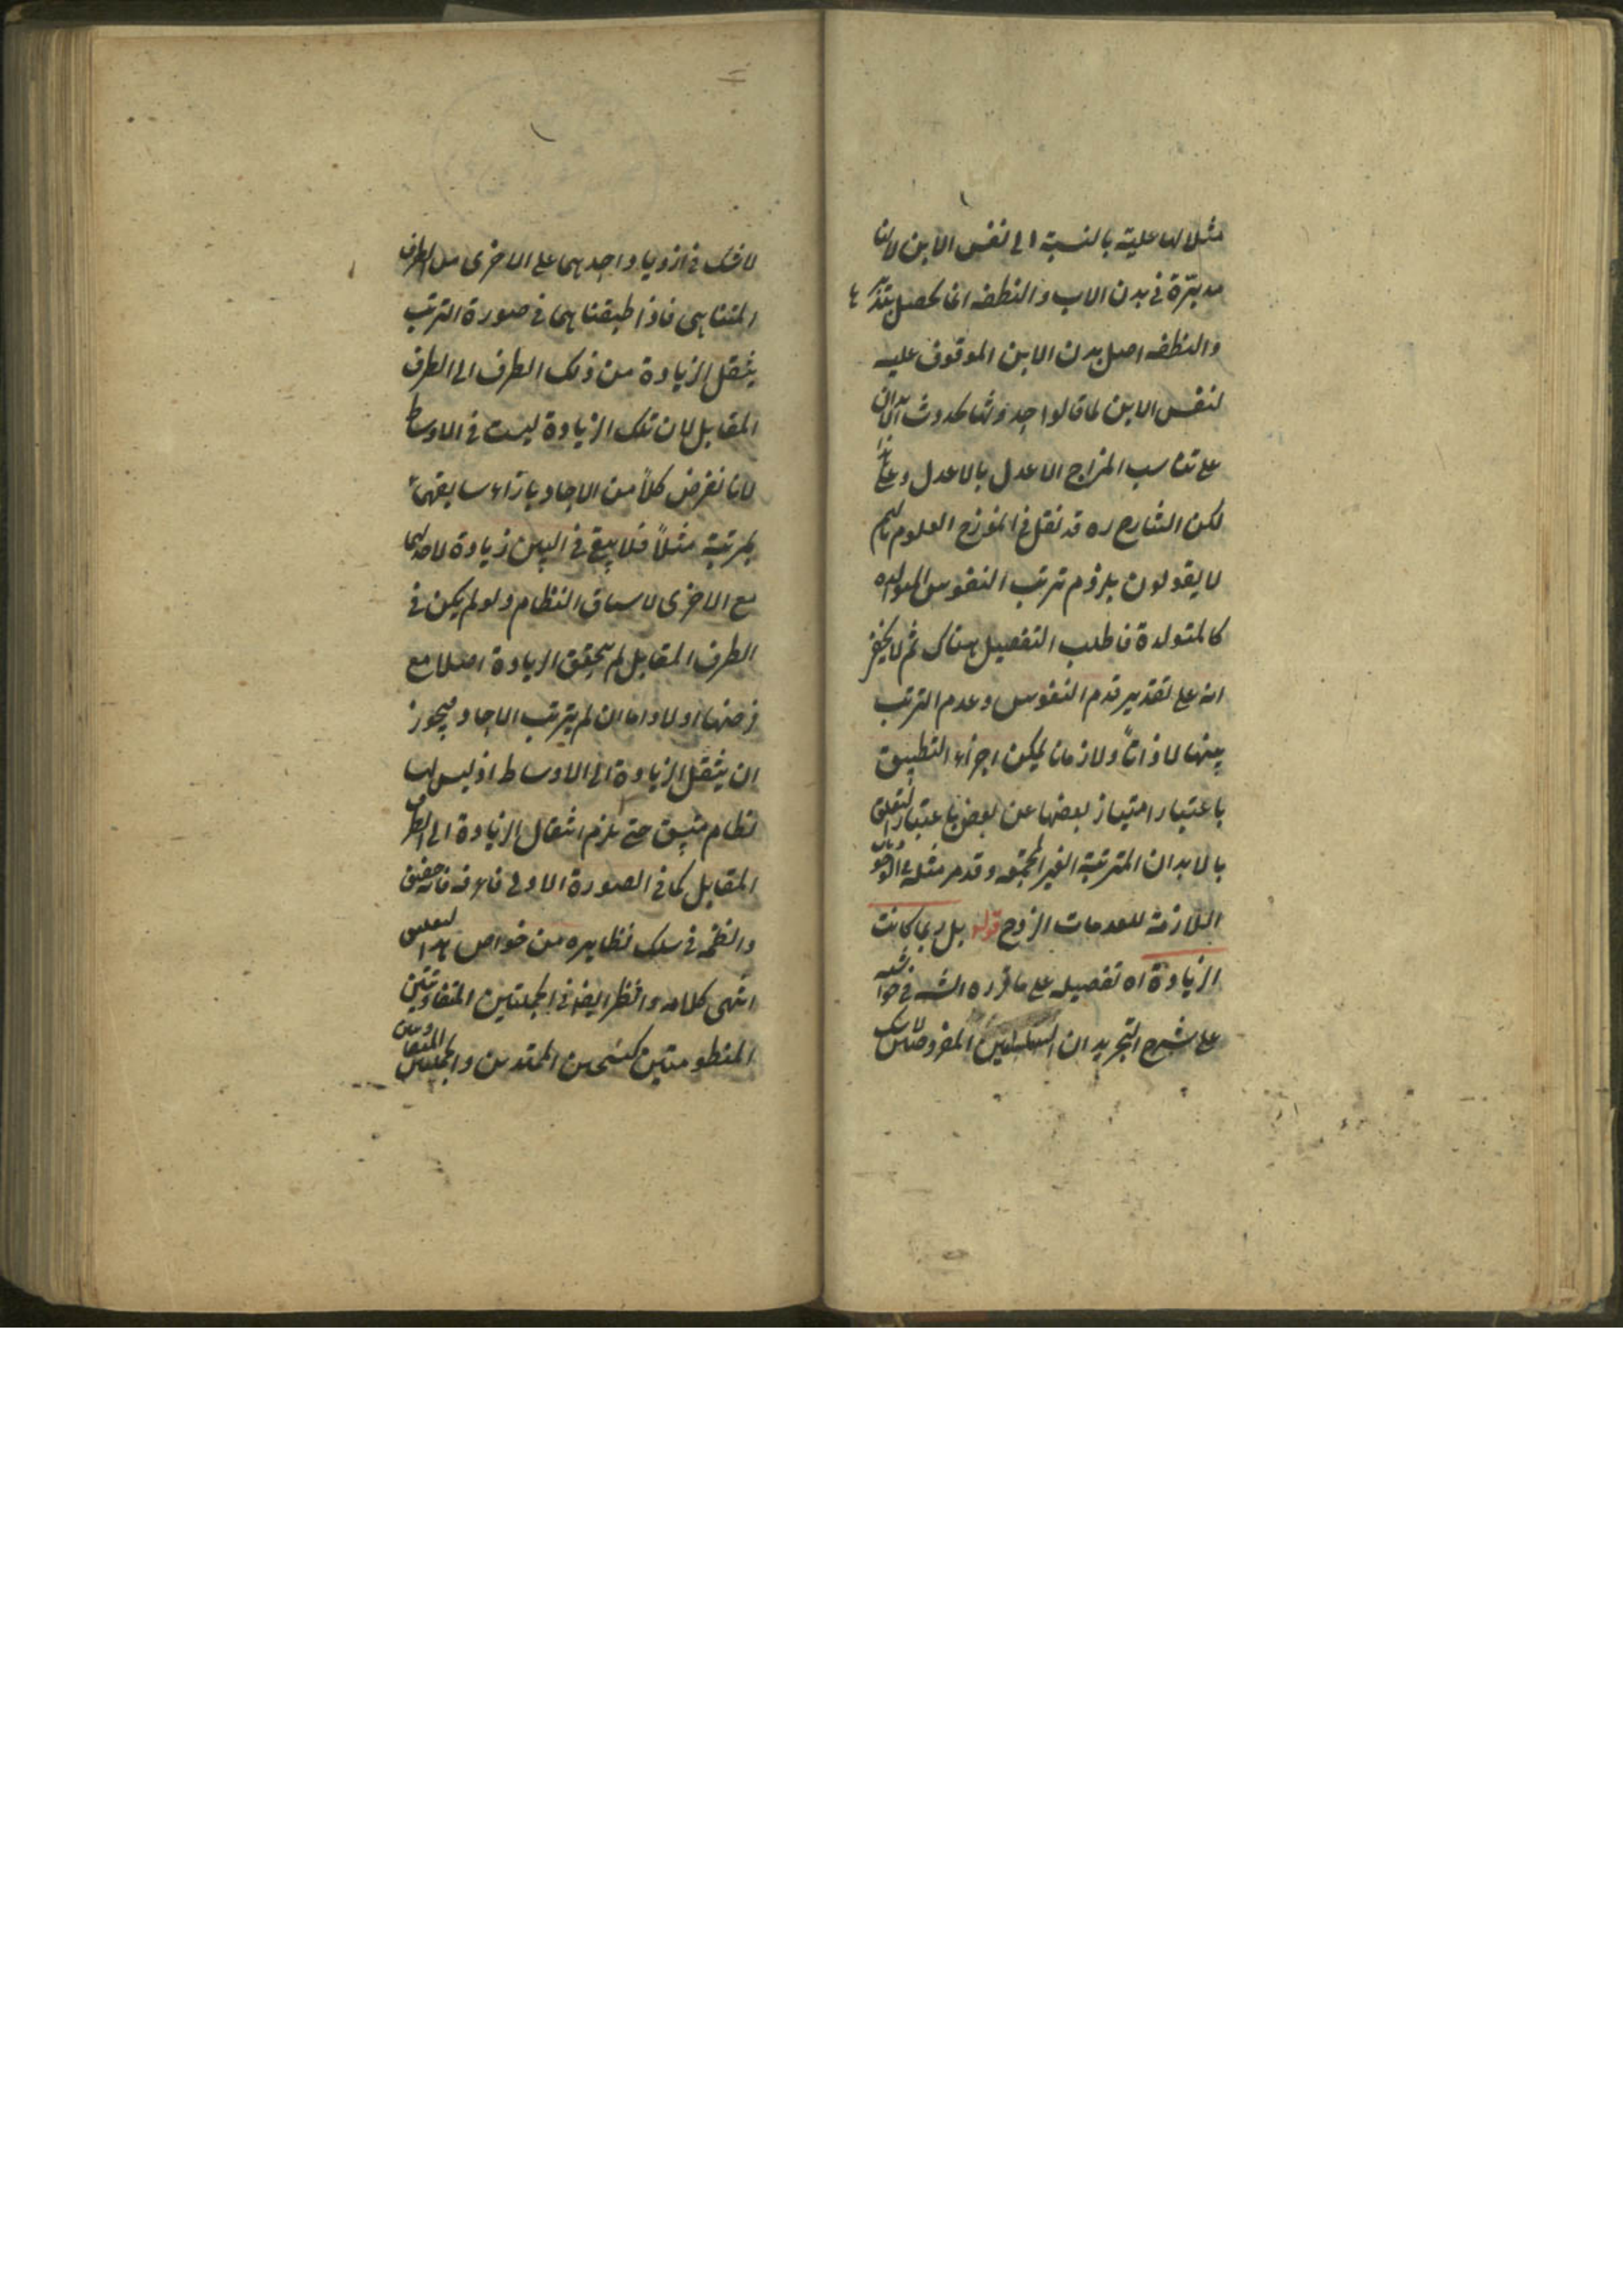 مثلا لها علية بالنسبة الى نفس الابن لانها
مدبّرة في بدن الاب والنطفه انما تحصل بتدبيرها
والنطفه اصل بدن الابن الموقوف عليه
لنفس الابن لما قالوا حدوثها كحدوث الابدان
على تناسب المزاج الاعدل بالاعدل وعلى هذا
لكن الشارح ره قد نقل في انموذج العلوم انهم
لا يقولون بلزوم ترتب النفوس المولده
كالمتولدة فاطلب التفصيل هناك ثم لا يخفى
انه على تقدير قدم النفوس وعدم الترتب
بينها لا ذاتاً ولا زمانا يمكن اجراء التطبيق
باعتبار امتياز بعضها عن بعض باعتبار التعلق
بالابدان المترتبة الغير المجتمعه وقد مر مثله في
اللازمة للعدمات الزوج قوله بل ربما كانت
الزيادة اه تفصيله على ما قرره الشـ في حواشيه
على شرح التجريد ان السلسلتين المفروضتين
لا شك في ازدياد احديهما على الاخرى من الطرف
المتناهى فاذا طبقناهما في صورة الترتب
ينتقل الزيادة من ذلك الطرف الى الطرف
المقابل لان تلك الزيادة ليست في الاوساط
لانا نفرض كلاً من الاحاد بازاء سابقها
بمرتبة مثلاً فلا يبقى في البين زيادة لاحديهما
مع الاخرى لاتساق النظام ولو لم يكن في
الطرف المقابل لم يتحقق الزيادة اصلا مع
فرضها اولا واما ان لم يترتب الاحاد فيجوز
ان ينتقل الزيادة الى الاوساط اذ ليس لها
نظام متسق حتى يلزم انتقال الزيادة الى الطرف
المقابل كما في الصورة الاولى فاعرفه فانه حقيق
وانظمه في سلك نظايره من خواص هذا التعليق
انتهى كلامه وانظر ايضا في الجملتين المتفاوتتين
المنظومتين كشيئين الممتدين والجملتين